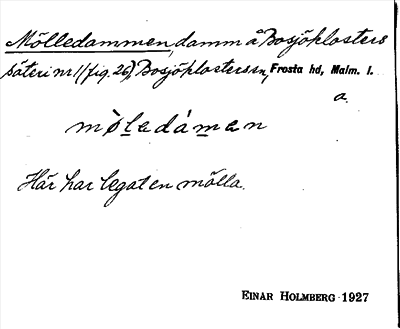 Mölledammen, damm å Bosjöklosters
säteri nr 1 (fig. 26), Bosjöklosters sn, Frosta hd, Malm. l.
a.
mòledáman
Här har legat en mölla.
EINAR HOLMBERG 1927